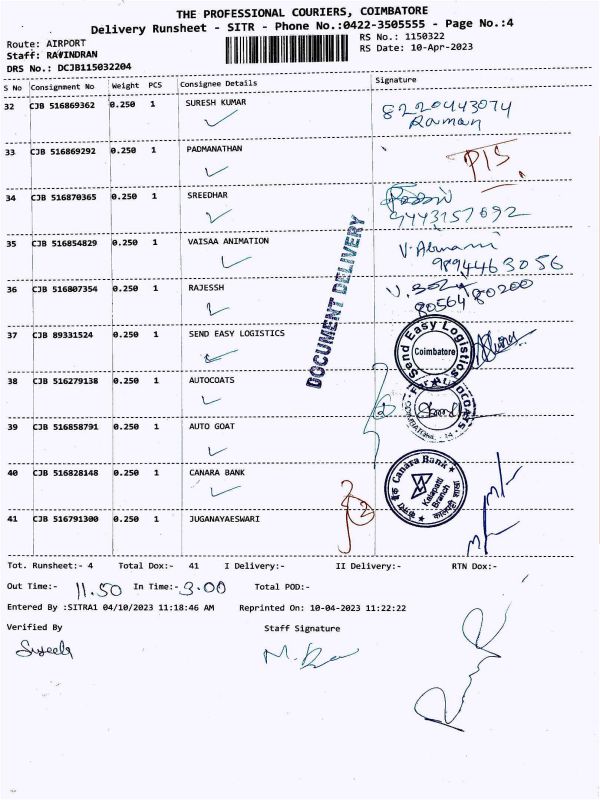 THE PROFESSIONAL COURIERS, COIMBATORE
Delivery Runsheet - SITR - Phone No.:0422-3505555 - Page No.:4
Route: AIRPORT
RS No.: 1150322
Staff:
RS Date: 10-Apr-2023
DRS No.: DCJB115032204
S No Consignment No Weight PCS Consignee Details Signature
32 CJB 516869362 0.250 1 SURESH KUMAR
8220443074
Raman
33 CJB 516869292 0.250 1 PADMANATHAN
34 CJB 516870365 0.250 1 SREEDHAR
9443157692
35 CJB 516854829 0.250 1 VAISAA ANIMATION
9894463056
36 CJB 516807354 0.250 1 RAJESSH
8056480200
DOCUMENT DELIVERY
37 CJB 89331524 0.250 1 SEND EASY LOGISTICS
Send Easy Logistics
Coimbatore
38 CJB 516279138 0.250 1 AUTOCOATS
39 CJB 516858791 0.250 1 AUTO GOAT
2
40 CJB 516828148 0.250 1 CANARA BANK
Canara Bank
Kalapatti
Branch
41 CJB 516791300 0.250 1 JUGANAYAESWARI
2
Tot. Runsheet:- 4 Total Dox:- 41 I Delivery:- II Delivery:- RTN Dox:-
Out Time:- 11.50 In Time:- 3.00 Total POD:-
Entered By :SITRA1 04/10/2023 11:18:46 AM Reprinted On: 10-04-2023 11:22:22
Verified By Staff Signature